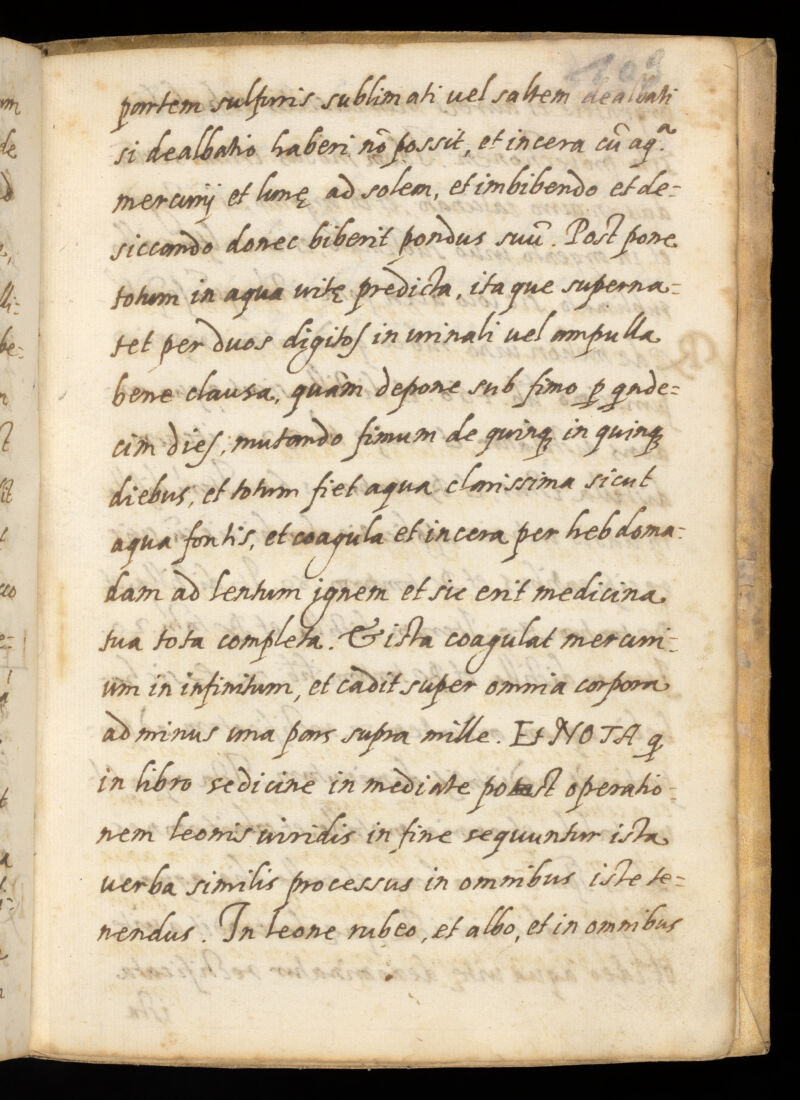 109
partem sulfuris sublimati vel saltem dealbati
si dealbatio haberi nō possit, et incera cū aqª.
mercurij et lunę ad solem, et imbibendo et de=
siccando donec biberit pondus suū. Post pone
totum in aqua vitę predicta, ita que superna=
tet per duos digitos in urinali vel ampulla
bene clausa, quam depone sub fimo p qnde=
cim dies, mutando fimum de quinq in quinq
diebus, et totum fiet aqua clarissima sicut
aqua fontis, et coagula et incera per hebdoma=
dam ad lentum ignem et sic erit medicina
tua tota completa. & ista coagulat mercuri=
um in infinitum, et cadit super omnia corpora
ad minus una pars supra mille. Et NOTA q
in libro sedicine in mediate post operatio=
nem leonis viridis in fine sequuntur ista
verba similis processus in omnibus iste te=
nendus. In leone rubeo, et albo, et in omnibus